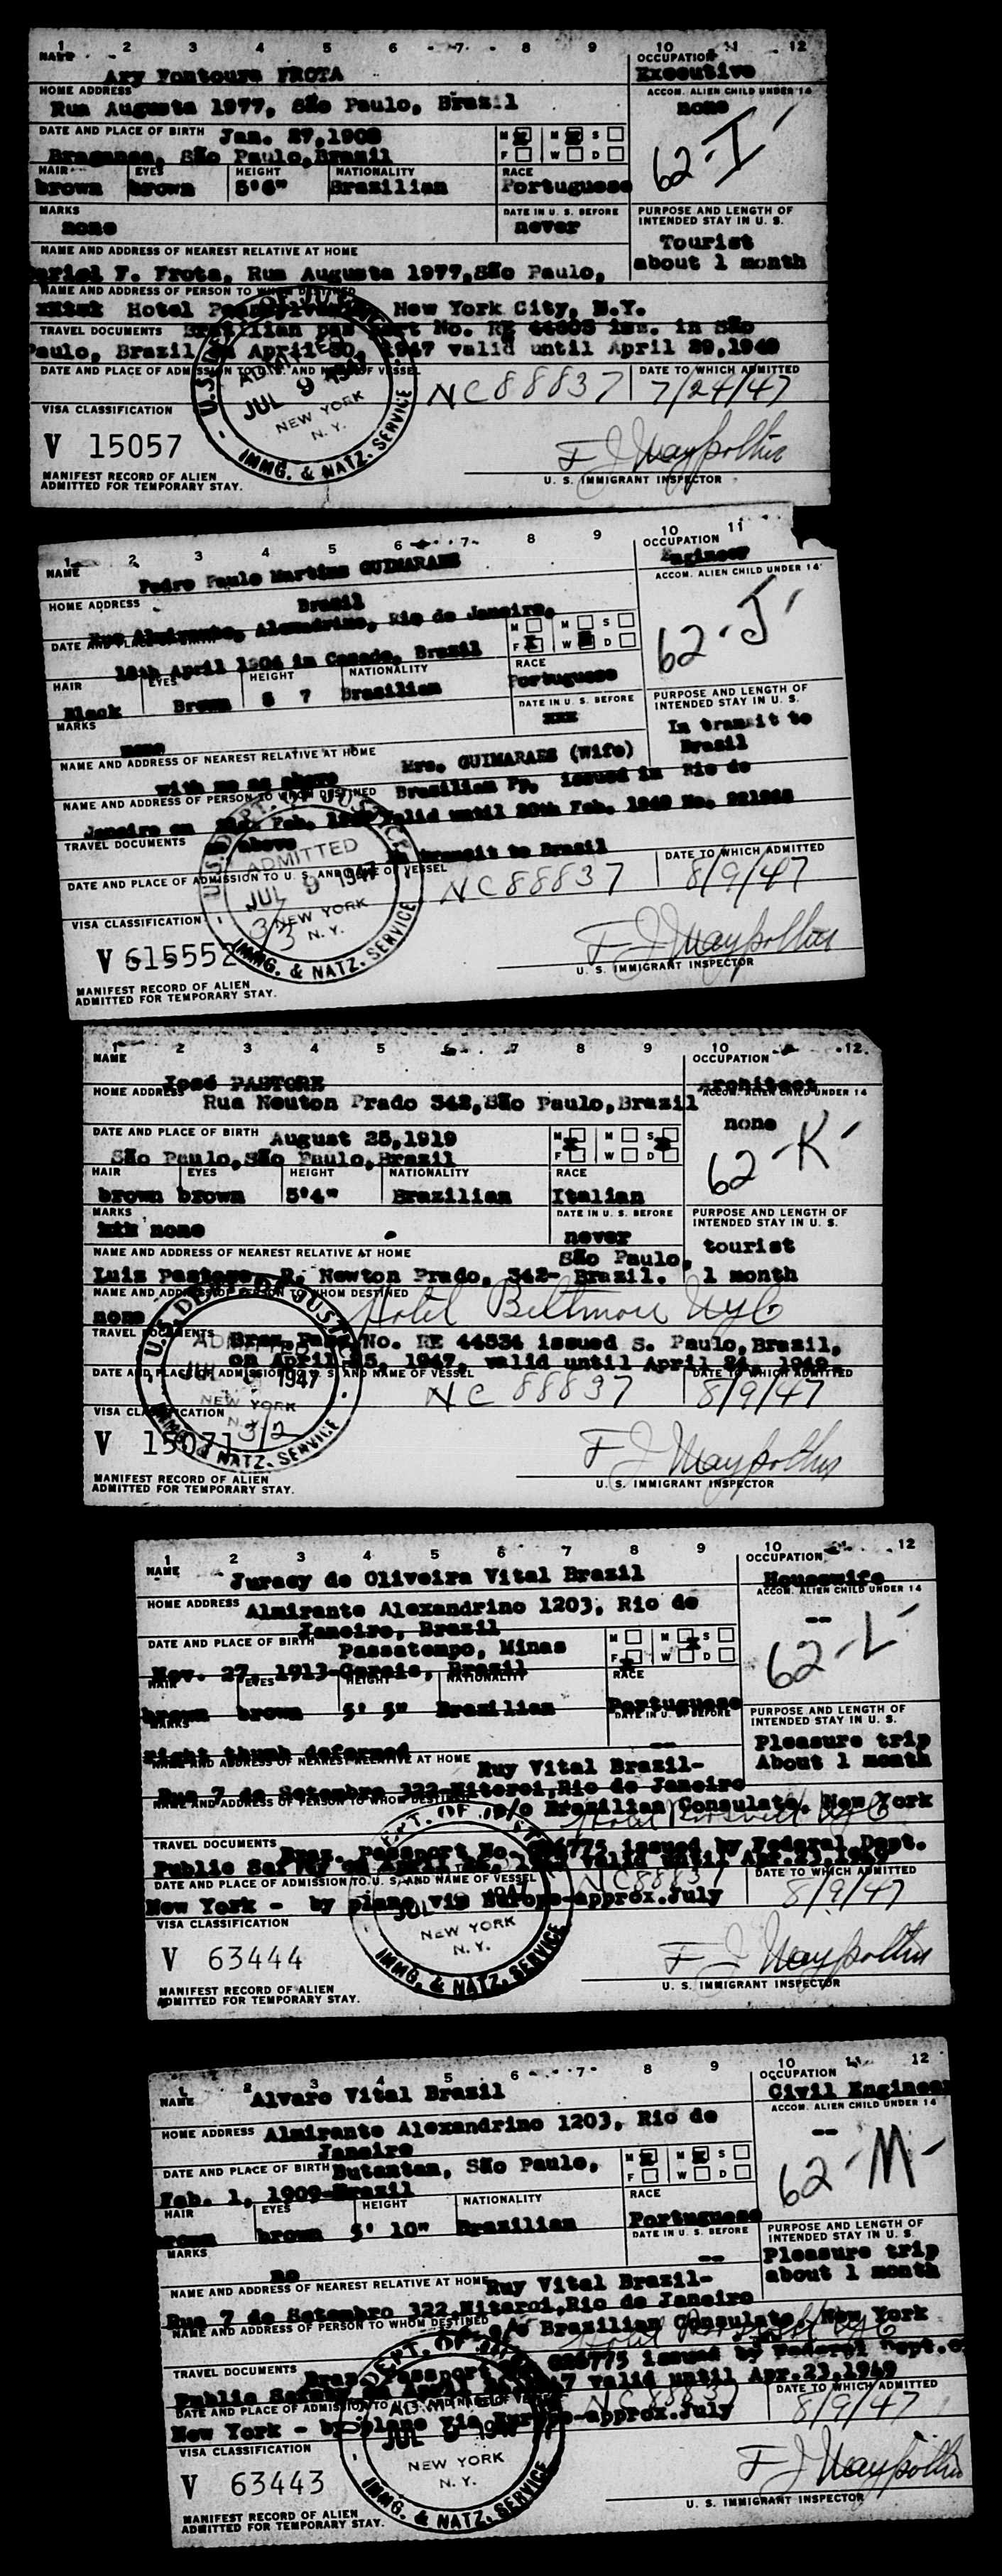 1 2 3 4 5 6 7 8 9 10 11 12
NAME OCCUPATION
Ary Fontoura FROTA Executive
HOME ADDRESS ACCOM. ALIEN CHILD UNDER 14
Rua Augusta 1977, São Paulo, Brazil none
DATE AND PLACE OF BIRTH Jan. 27,1908 M M S
Braganea, São Paulo,Brazil F W D
62-I
HAIR EYES HEIGHT NATIONALITY RACE
brown brown 5'6" Brazilian Portuguese
MARKS DATE IN U. S. BEFORE PURPOSE AND LENGTH OF INTENDED STAY IN U. S.
none never Tourist
NAME AND ADDRESS OF NEAREST RELATIVE AT HOME about 1 month
F. Frota, Rua Augusta 1977,São Paulo,
NAME AND ADDRESS OF PERSON TO WHOM DESTINED
Hotel Pennsylvania, New York City, N.Y.
TRAVEL DOCUMENTS Brazilian passport No. RE iss. in São
Paulo, Brazil April 30, 1947 valid until April 29,1949
DATE AND PLACE OF ADMISSION TO U. S. AND NAME OF VESSEL NC88837 DATE TO WHICH ADMITTED
7/24/47
JUL 9
NEW YORK
N. Y.
IMMG. & NATZ. SERVICE
VISA CLASSIFICATION
V 15057
MANIFEST RECORD OF ALIEN
ADMITTED FOR TEMPORARY STAY.
U. S. IMMIGRANT INSPECTOR
1 2 3 4 5 6 7 8 9 10 11
NAME OCCUPATION
Pedro Paulo Martins GUIMARAES Engineer
HOME ADDRESS Brazil ACCOM. ALIEN CHILD UNDER 14
Rua Almirante, Alexandrino, Rio de Janeiro, 62-J
DATE AND PLACE OF BIRTH M M S
18th April 1904 in Brazil F W D
HAIR EYES HEIGHT NATIONALITY RACE
Black Brown 5 7 Brazilian Portuguese
MARKS DATE IN U. S. BEFORE PURPOSE AND LENGTH OF INTENDED STAY IN U. S.
none xxx In transit to
NAME AND ADDRESS OF NEAREST RELATIVE AT HOME Mrs. GUIMARAES (Wife) Brazil
with me as above Brazilian Pp. issued in Rio de
NAME AND ADDRESS OF PERSON TO WHOM DESTINED
Janeiro on Feb. valid until 20th Feb. 1949 No.
TRAVEL DOCUMENTS as above
In transit to Brazil
DATE AND PLACE OF ADMISSION TO U. S. AND NAME OF VESSEL NC88837 DATE TO WHICH ADMITTED
8/9/47
ADMITTED
JUL 9 1947
NEW YORK
N. Y.
IMMG. & NATZ. SERVICE
VISA CLASSIFICATION
V 615552
MANIFEST RECORD OF ALIEN
ADMITTED FOR TEMPORARY STAY.
U. S. IMMIGRANT INSPECTOR
1 2 3 4 5 6 7 8 9 10 12
NAME OCCUPATION
José PASTORE Architect
HOME ADDRESS ACCOM. ALIEN CHILD UNDER 14
Rua Neuton Prado 342,São Paulo,Brazil none
DATE AND PLACE OF BIRTH August 25,1919 M M S
São Paulo,São Paulo,Brazil F W D
62-K
HAIR EYES HEIGHT NATIONALITY RACE
brown brown 5'4" Brazilian Italian
MARKS DATE IN U. S. BEFORE PURPOSE AND LENGTH OF INTENDED STAY IN U. S.
none never tourist
NAME AND ADDRESS OF NEAREST RELATIVE AT HOME São Paulo, 1 month
Luis Pastore, R. Newton Prado, 342- Brazil.
NAME AND ADDRESS OF PERSON TO WHOM DESTINED Hotel Biltmore NYC
none
TRAVEL DOCUMENTS Braz. Pass. No. RE 44534 issued S. Paulo,Brazil,
on April 25, 1947, valid until April
DATE AND PLACE OF ADMISSION TO U. S. AND NAME OF VESSEL NC 88837 DATE TO WHICH ADMITTED
8/9/47
1947
NEW YORK
N. Y.
IMMG. & NATZ. SERVICE
VISA CLASSIFICATION
V 15071
MANIFEST RECORD OF ALIEN
ADMITTED FOR TEMPORARY STAY.
U. S. IMMIGRANT INSPECTOR
1 2 3 4 5 6 7 8 9 10 12
NAME OCCUPATION
Juracy de Oliveira Vital Brazil Housewife
HOME ADDRESS Almirante Alexandrino 1203, Rio de ACCOM. ALIEN CHILD UNDER 14
Janeiro, Brazil --
DATE AND PLACE OF BIRTH Passatempo, Minas M M S
Nov. 27, 1913-Gerais, Brazil F W D
62-L
HAIR EYES HEIGHT NATIONALITY RACE
brown brown 5' 5" Brazilian Portuguese
MARKS DATE IN U. S. BEFORE PURPOSE AND LENGTH OF INTENDED STAY IN U. S.
right thumb deformed -- Pleasure trip
NAME AND ADDRESS OF NEAREST RELATIVE AT HOME Ruy Vital Brazil- About 1 month
Rua 7 de Setembro 322,Niteroi,Rio de Janeiro
NAME AND ADDRESS OF PERSON TO WHOM DESTINED c/o Brazilian Consulate, New York
Hotel Roosevelt NYC
TRAVEL DOCUMENTS Braz. Passport No. issued by Federal Dept.
Public Safety on April valid until Apr.23,1949
DATE AND PLACE OF ADMISSION TO U. S. AND NAME OF VESSEL NC88837 DATE TO WHICH ADMITTED
New York - by plane via Europe-approx.July 8/9/47
NEW YORK
N. Y.
IMMG. & NATZ. SERVICE
VISA CLASSIFICATION
V 63444
MANIFEST RECORD OF ALIEN
ADMITTED FOR TEMPORARY STAY.
U. S. IMMIGRANT INSPECTOR
1 2 3 4 5 6 7 8 9 10 11 12
NAME OCCUPATION
Alvaro Vital Brazil Civil Engineer
HOME ADDRESS Almirante Alexandrino 1203, Rio de ACCOM. ALIEN CHILD UNDER 14
Janeiro --
DATE AND PLACE OF BIRTH Butantan, São Paulo, M M S
Feb. 1, 1909-Brazil F W D
62-M
HAIR EYES HEIGHT NATIONALITY RACE
brown brown 5' 10" Brazilian Portuguese
MARKS DATE IN U. S. BEFORE PURPOSE AND LENGTH OF INTENDED STAY IN U. S.
no -- Pleasure trip
NAME AND ADDRESS OF NEAREST RELATIVE AT HOME Ruy Vital Brazil- about 1 month
Rua 7 de Setembro 322,Niteroi,Rio de Janeiro
NAME AND ADDRESS OF PERSON TO WHOM DESTINED c/o Brazilian Consulate, New York
Hotel Roosevelt NYC
TRAVEL DOCUMENTS Braz. Passport issued by Federal Dept.
Public Safety on April valid until Apr.23,1949
DATE AND PLACE OF ADMISSION TO U. S. AND NAME OF VESSEL NC88837 DATE TO WHICH ADMITTED
New York - by plane via Europe-approx.July 8/9/47
JUL 9 1947
NEW YORK
N. Y.
IMMG. & NATZ. SERVICE
VISA CLASSIFICATION
V 63443
MANIFEST RECORD OF ALIEN
ADMITTED FOR TEMPORARY STAY.
U. S. IMMIGRANT INSPECTOR